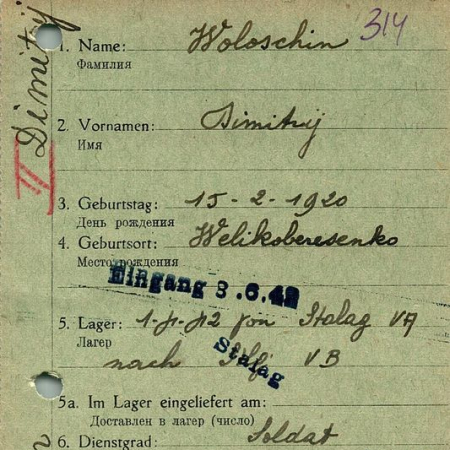 314
1. Name: Woloschin
Фамилия
Dimitrij
2. Vornamen: Dimitrij
Имя
3. Geburtstag: 15-2-1920
День рождения
4. Geburtsort: Welikoberesenko
Место рождения
Eingang 3.6.42
5. Lager: von Stalag VA
Лагер
nach VB
Stalag
5a. Im Lager eingeliefert am:
Доставлен в лагер (число)
6. Dienstgrad: Soldat